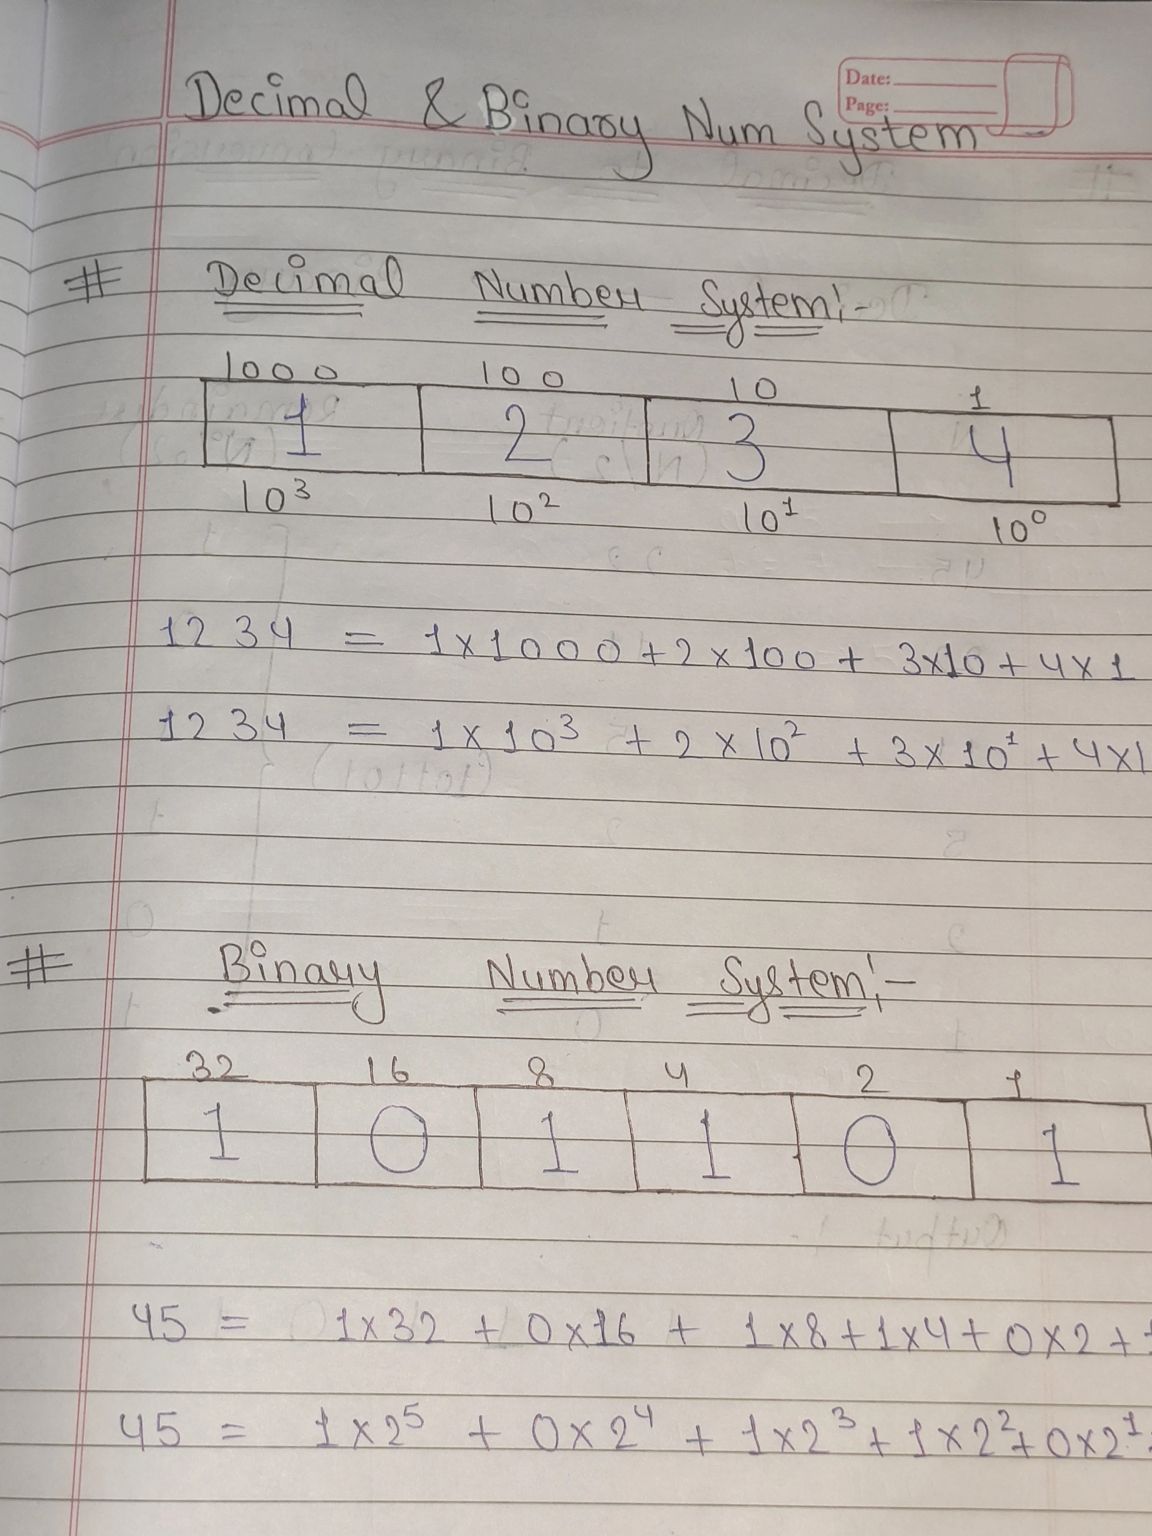 Date:
Page:
Decimal & Binary Num System
# Decimal Number System:-
1000 100 10 1
1 2 3 4
10³ 10² 10¹ 10⁰
1234 = 1x1000+2x100+ 3x10+4x1
1234 = 1x10³ + 2x10² + 3x10¹ + 4x1
# Binary Number System:-
32 16 8 4 2 1
1 0 1 1 0 1
45 = 1x32 + 0x16 + 1x8+1x4+0x2+
45 = 1x2⁵ + 0x2⁴ + 1x2³+1x2²+0x2¹